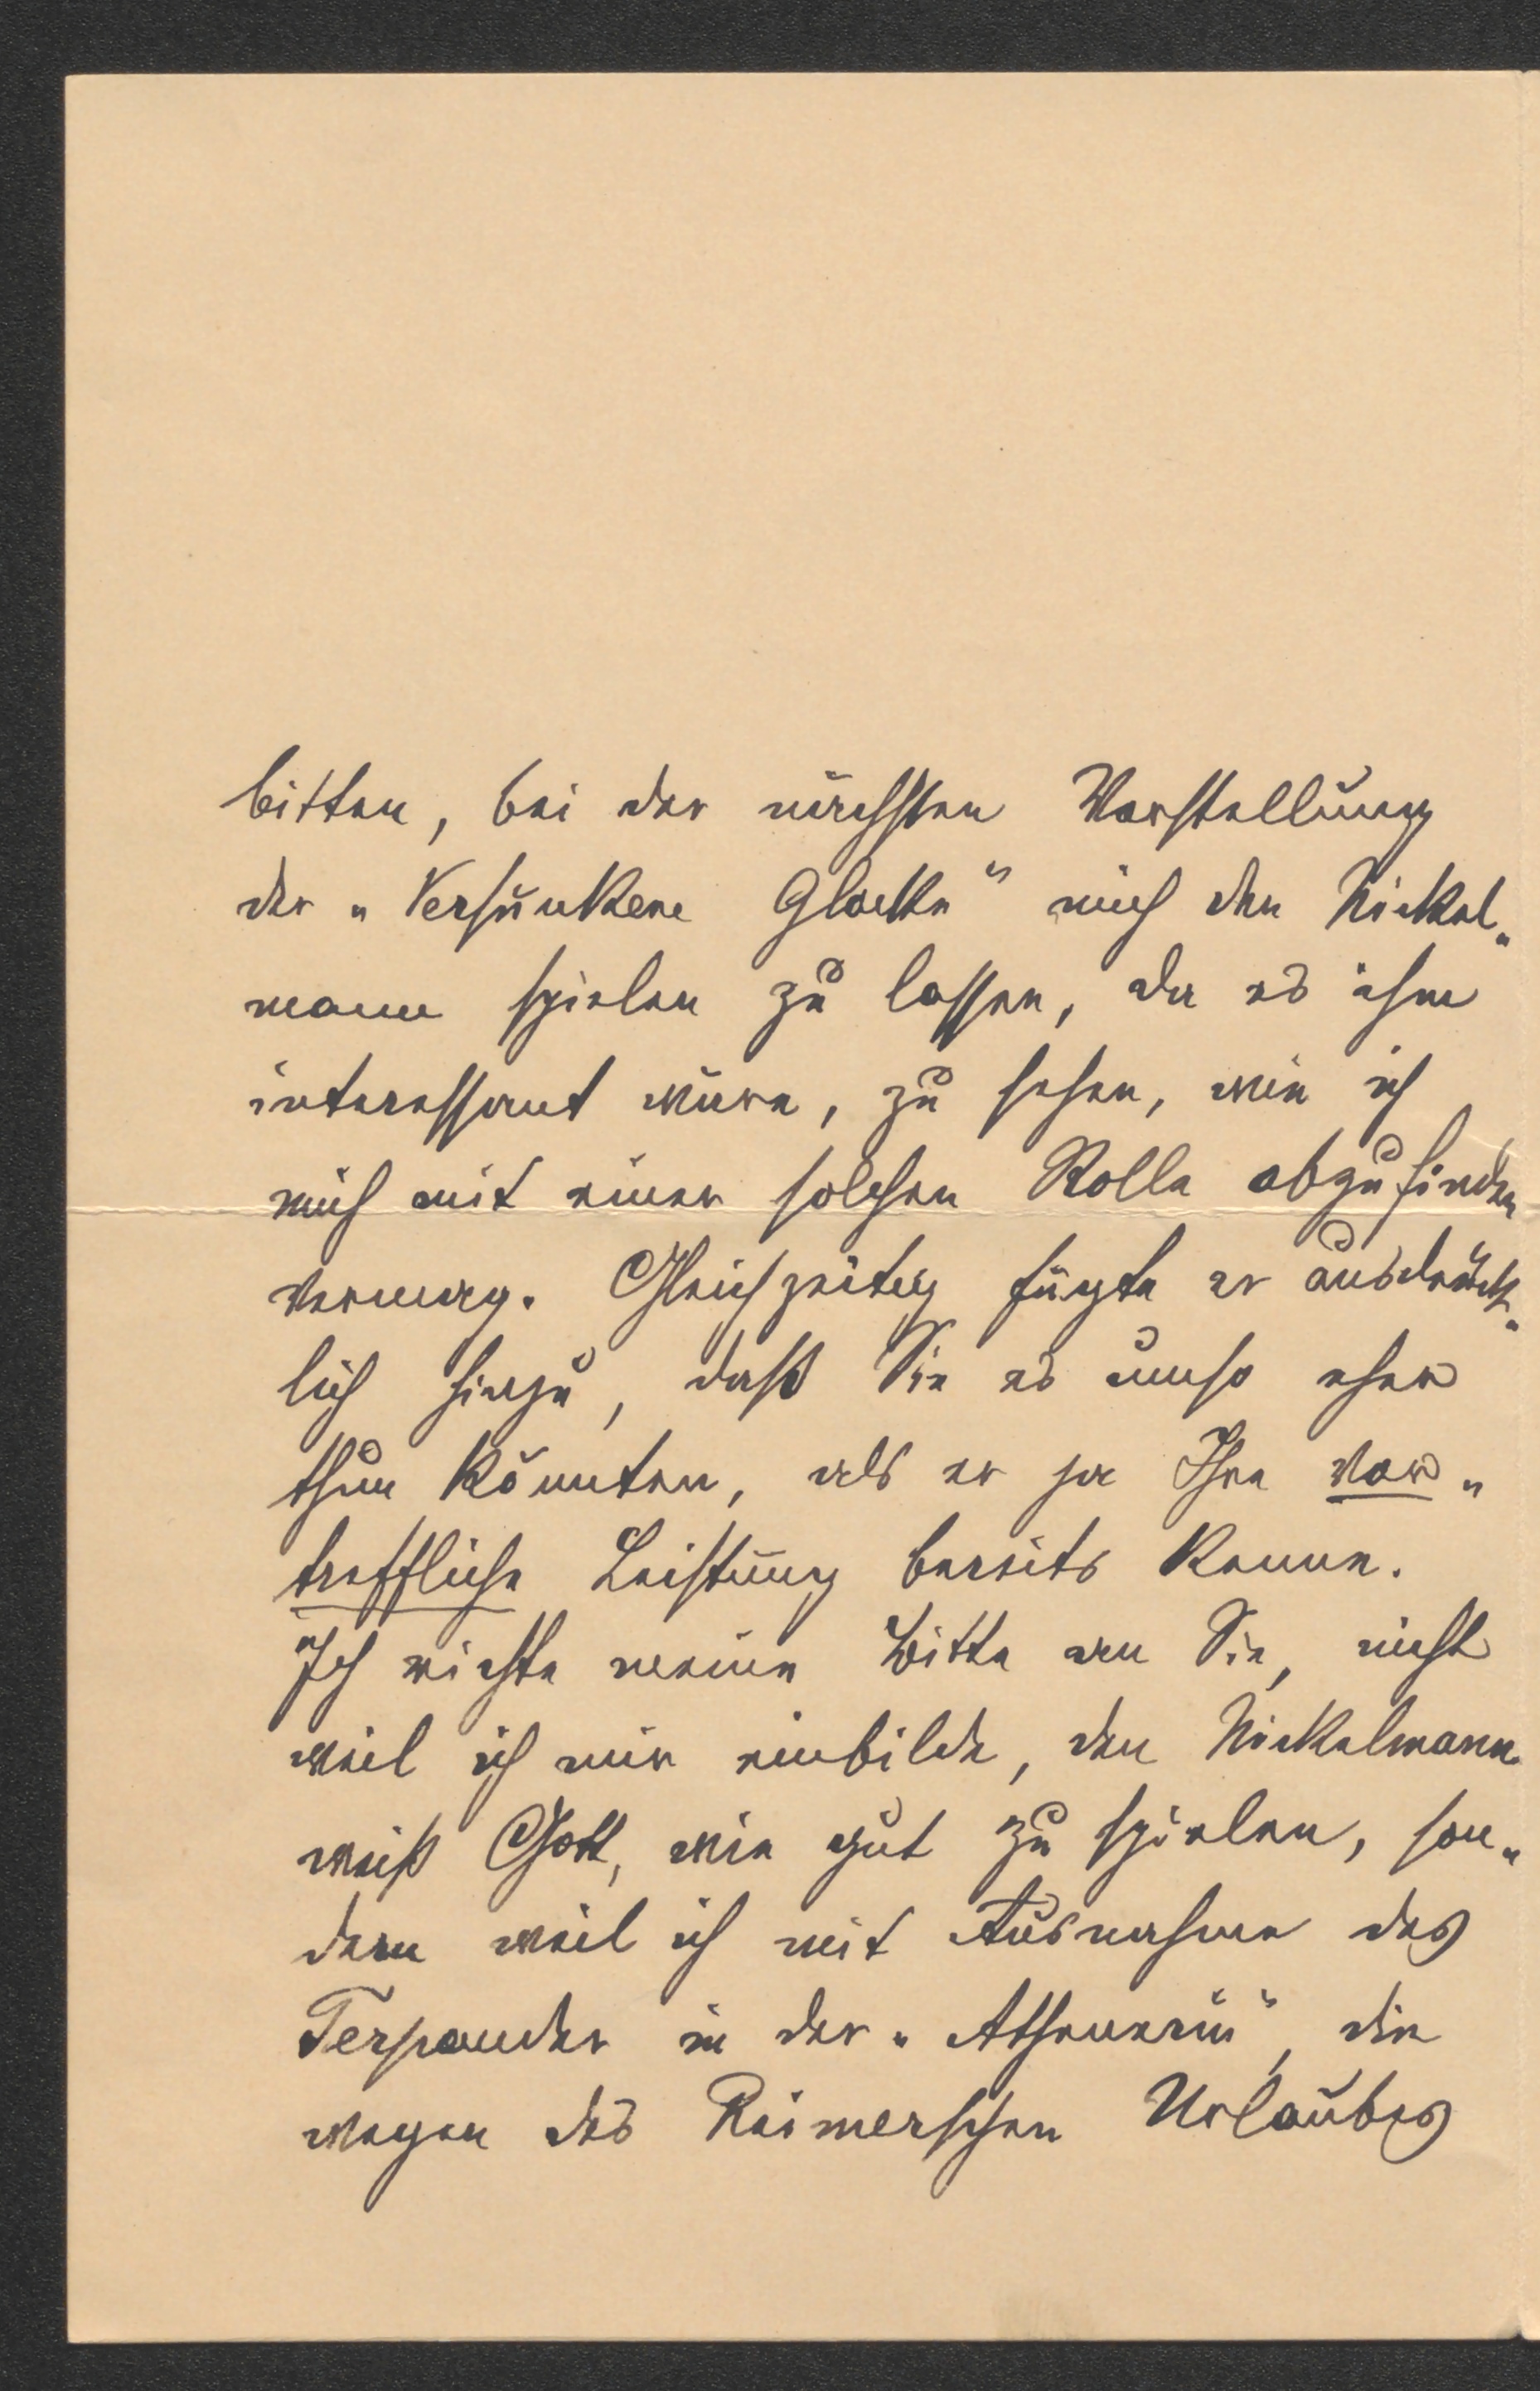 bitten, bei der nächsten Vorstellung
der „Versunkene Glocke“ mich den Nickel„
mann spielen zu lassen, da es ihm
interessant wäre, zu sehen, wie ich
mich mit einer solchen Rolle abzufinden
vermag. Gleichzeitig fügte er ausdrück„
lich hinzu, daß Sie es umso eher
thun könnten, als er ja Ihre vor„
treffliche Leistung bereits kenne.
Ich richte meine Bitte an Sie, nicht
weil ich mir einbilde, den Nickelmann
weiß Gott, wie gut zu spielen, son„
dern weil ich mit Ausnahme des
Terpander in der „Athenerin“, die
wegen des Reimerschen Urlaubes